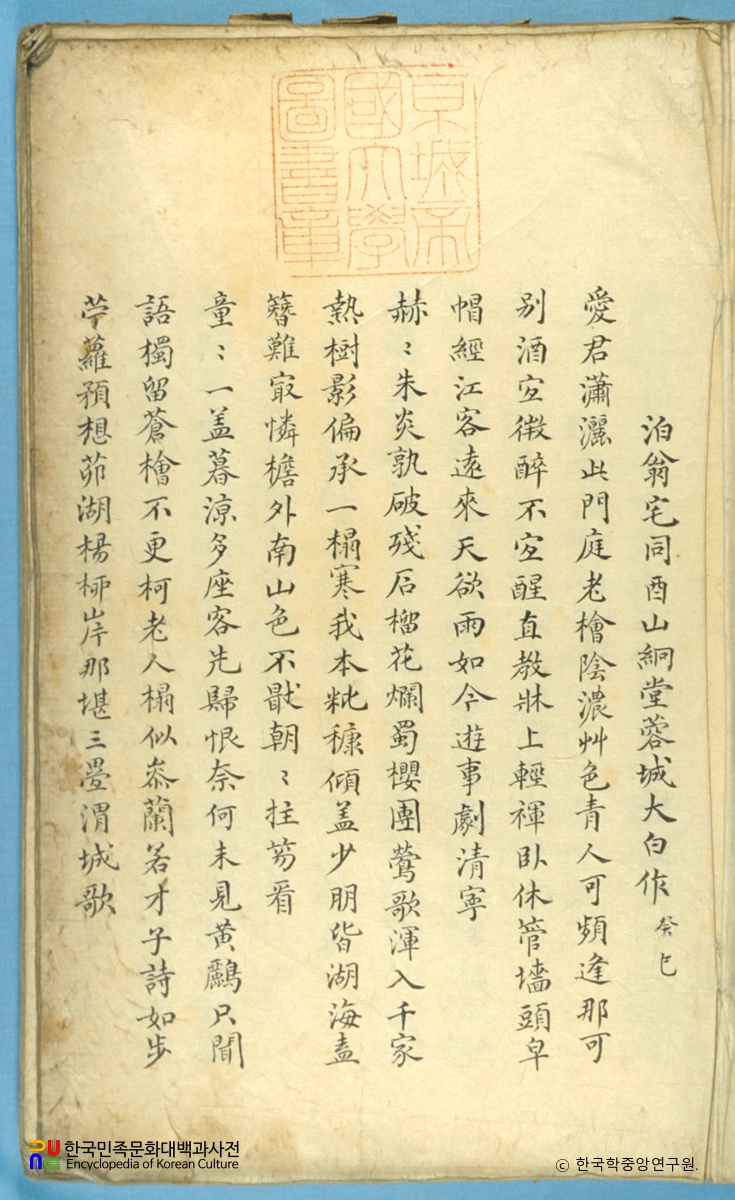 京城帝
國大學
圖書章
泊翁宅同酉山絅堂蓉城大白作 癸巳
愛君瀟灑此門庭老檜陰濃艸色青人可頻逢那可
別酒宜微醉不宜醒直教牀上輕褌臥休管墻頭皁
帽經江客遠來天欲雨如今遊事劇清寧
赫〻朱炎孰破殘石榴花爛蜀櫻團鶯歌渾入千家
熱樹影偏承一榻寒我本粃糠傾盖少朋皆湖海盍
簪難㝡憐檐外南山色不猒朝〻拄笏看
童〻一盖暮凉多座客先歸恨奈何未見黃鸝只聞
語獨留蒼檜不更柯老人榻似叅蘭若才子詩如步
苧蘿預想茆湖楊栁岸那堪三疊渭城歌
한국민족문화대백과사전
Encyclopedia of Korean Culture
ⓒ 한국학중앙연구원.